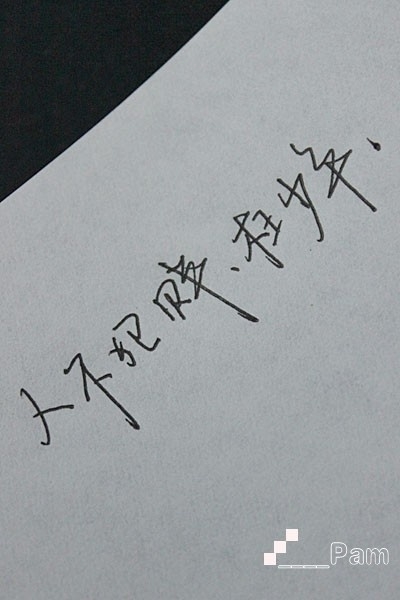 人不犯贱、枉少年.
___Pam